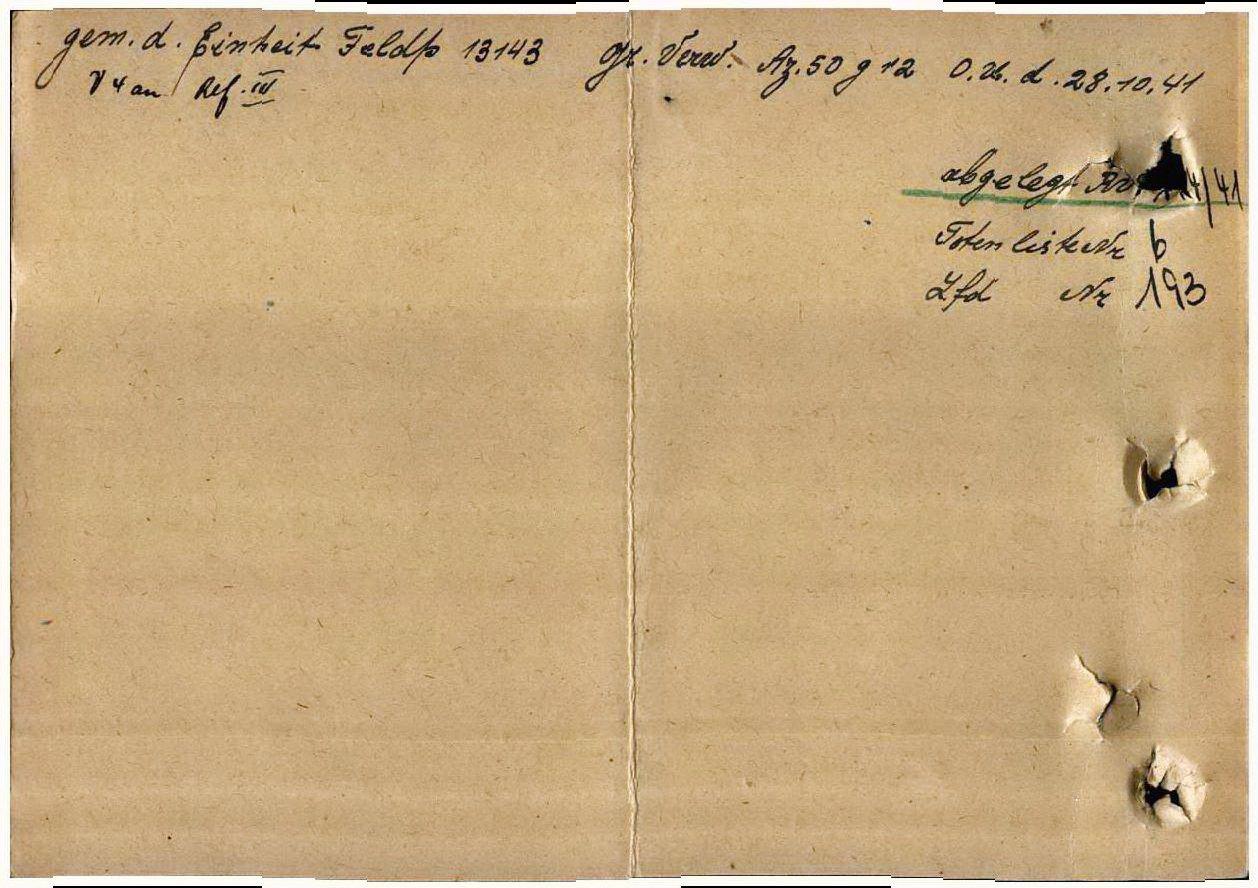 gem. d. Einheit Feldp 13143 Gr. Verw. Az. 50 g 12 O.U. d. 28.10.41
an Ref. IV
abgelegt /41
Totenliste Nr 6
Lfd Nr 193